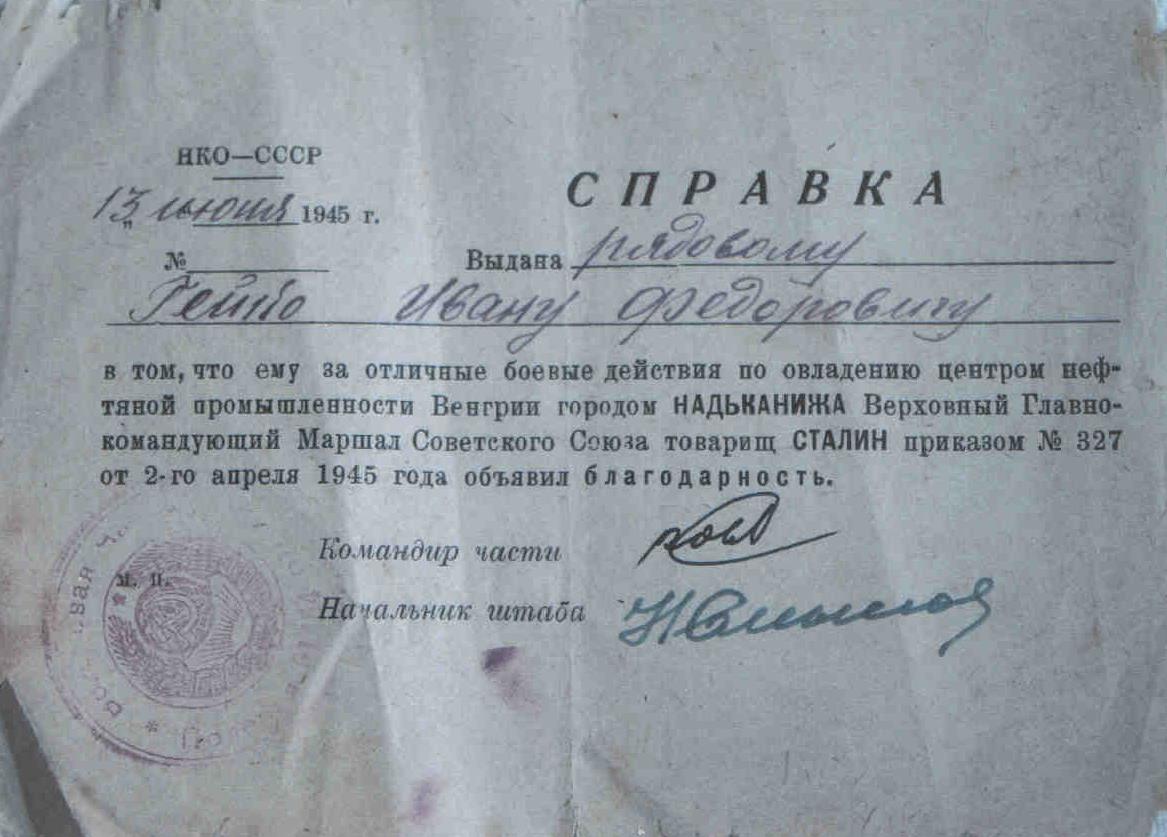 НКО—СССР
СПРАВКА
13 июня 1945 г.
№ Выдана рядовому
Гейбо Ивану Федоровичу
в том, что ему за отличные боевые действия по овладению центром неф-
тяной промышленности Венгрии городом НАДЬКАНИЖА Верховный Главно-
командующий Маршал Советского Союза товарищ СТАЛИН приказом № 327
от 2-го апреля 1945 года объявил благодарность.
Командир части
М. П.
Начальник штаба